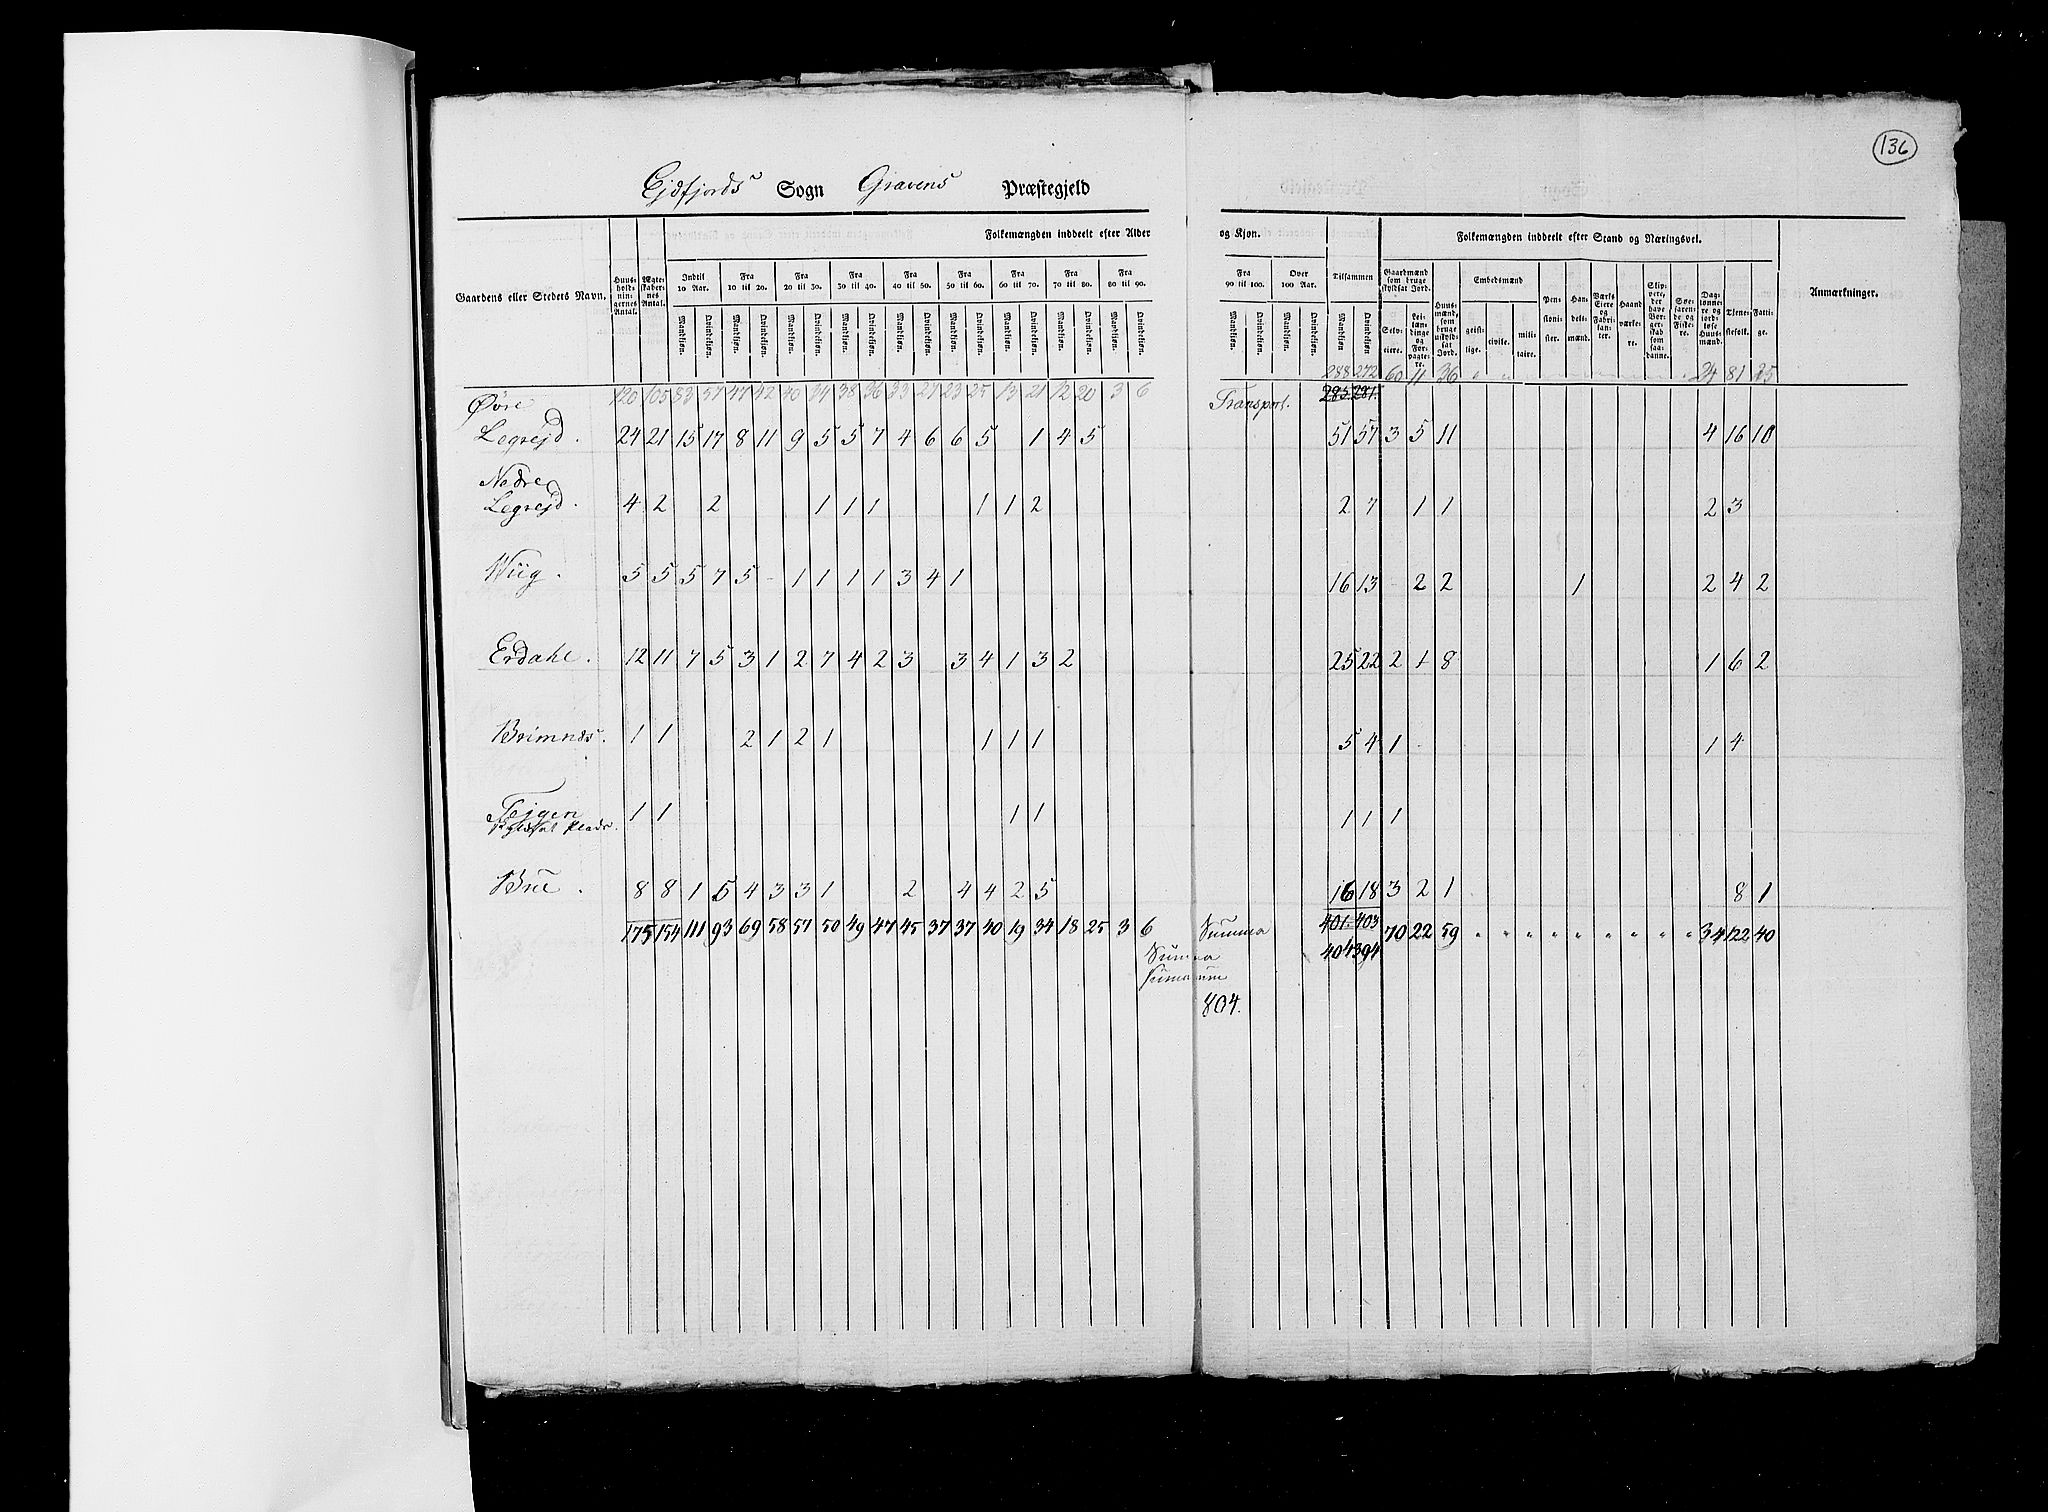 136
Ejdfjords Sogn Gravens Præstegjeld
Folkemængden inddeelt efter Alder og Kjøn. Folkemængden inddeelt efter Stand og Næringsvei.
Gaardens eller Steders Navn. Huusholdningernes Antal. Ægteskabernes Antal. Indtil 10 Aar. Fra 10 til 20. Fra 20 til 30. Fra 30 til 40. Fra 40 til 50. Fra 50 til 60. Fra 60 til 70. Fra 70 til 80. Fra 80 til 90. Fra 90 til 100. Over 100 Aar. Tilsammen Gaardmænd som bruge skyldsat Jord. Huusmænd, som bruge uskyldsat Jord. Embedsmænd Pensionister. Handelsmænd. Værks Eiere og Fabrikanter. Haandværkere. Skippere, der have Borgerskab som saadanne. Søefarende og Fiskere. Daglønnere og jordløse Huusmænd. Tienestefolk. Fattige. Anmærkninger.
Mandkiøn. Qvindekiøn. Mandkiøn. Qvindekiøn. Mandkiøn. Qvindekiøn. Mandkiøn. Qvindekiøn. Mandkiøn. Qvindekiøn. Mandkiøn. Qvindekiøn. Mandkiøn. Qvindekiøn. Mandkiøn. Qvindekiøn. Mandkiøn. Qvindekiøn. Mandkiøn. Qvindekiøn. Mandkiøn. Qvindekiøn. Mandkiøn Qvindekiøn Selveiere. Leilændinge og Forpagtere. geistlige. civile. militaire.
288 272 60 11 36 24 81 25
120 105 83 57 47 42 40 34 38 36 33 27 23 25 13 21 12 20 3 6 Transport. 283. 281.
Øvre
Legrejd. 24 21 15 17 8 11 9 5 5 7 4 6 6 5 1 4 5 51 57 3 5 11 4 16 10
Nedre
Legrejd. 4 2 2 1 1 1 1 1 2 2 7 1 1 2 3
Wiig. 5 5 5 7 5 - 1 1 1 1 3 4 1 16 13 - 2 2 1 2 4 2
Erdahl. 12 11 7 5 3 1 2 7 4 2 3 3 4 1 3 2 25 22 2 1 8 1 6 2
Brimnæs. 1 1 2 1 2 1 1 1 1 5 4 1 1 4
Tejgen 1 1 1 1 1 1 1
Brue. 8 8 1 5 4 3 3 1 2 4 4 2 5 16 18 3 2 1 8 1
175 154 111 93 69 58 57 50 49 47 45 37 37 40 19 34 18 25 3 6 Summa 401. 403 70 22 59 " " " " " " " " " 34 122 40
Summa 404 394
Summarum
804.